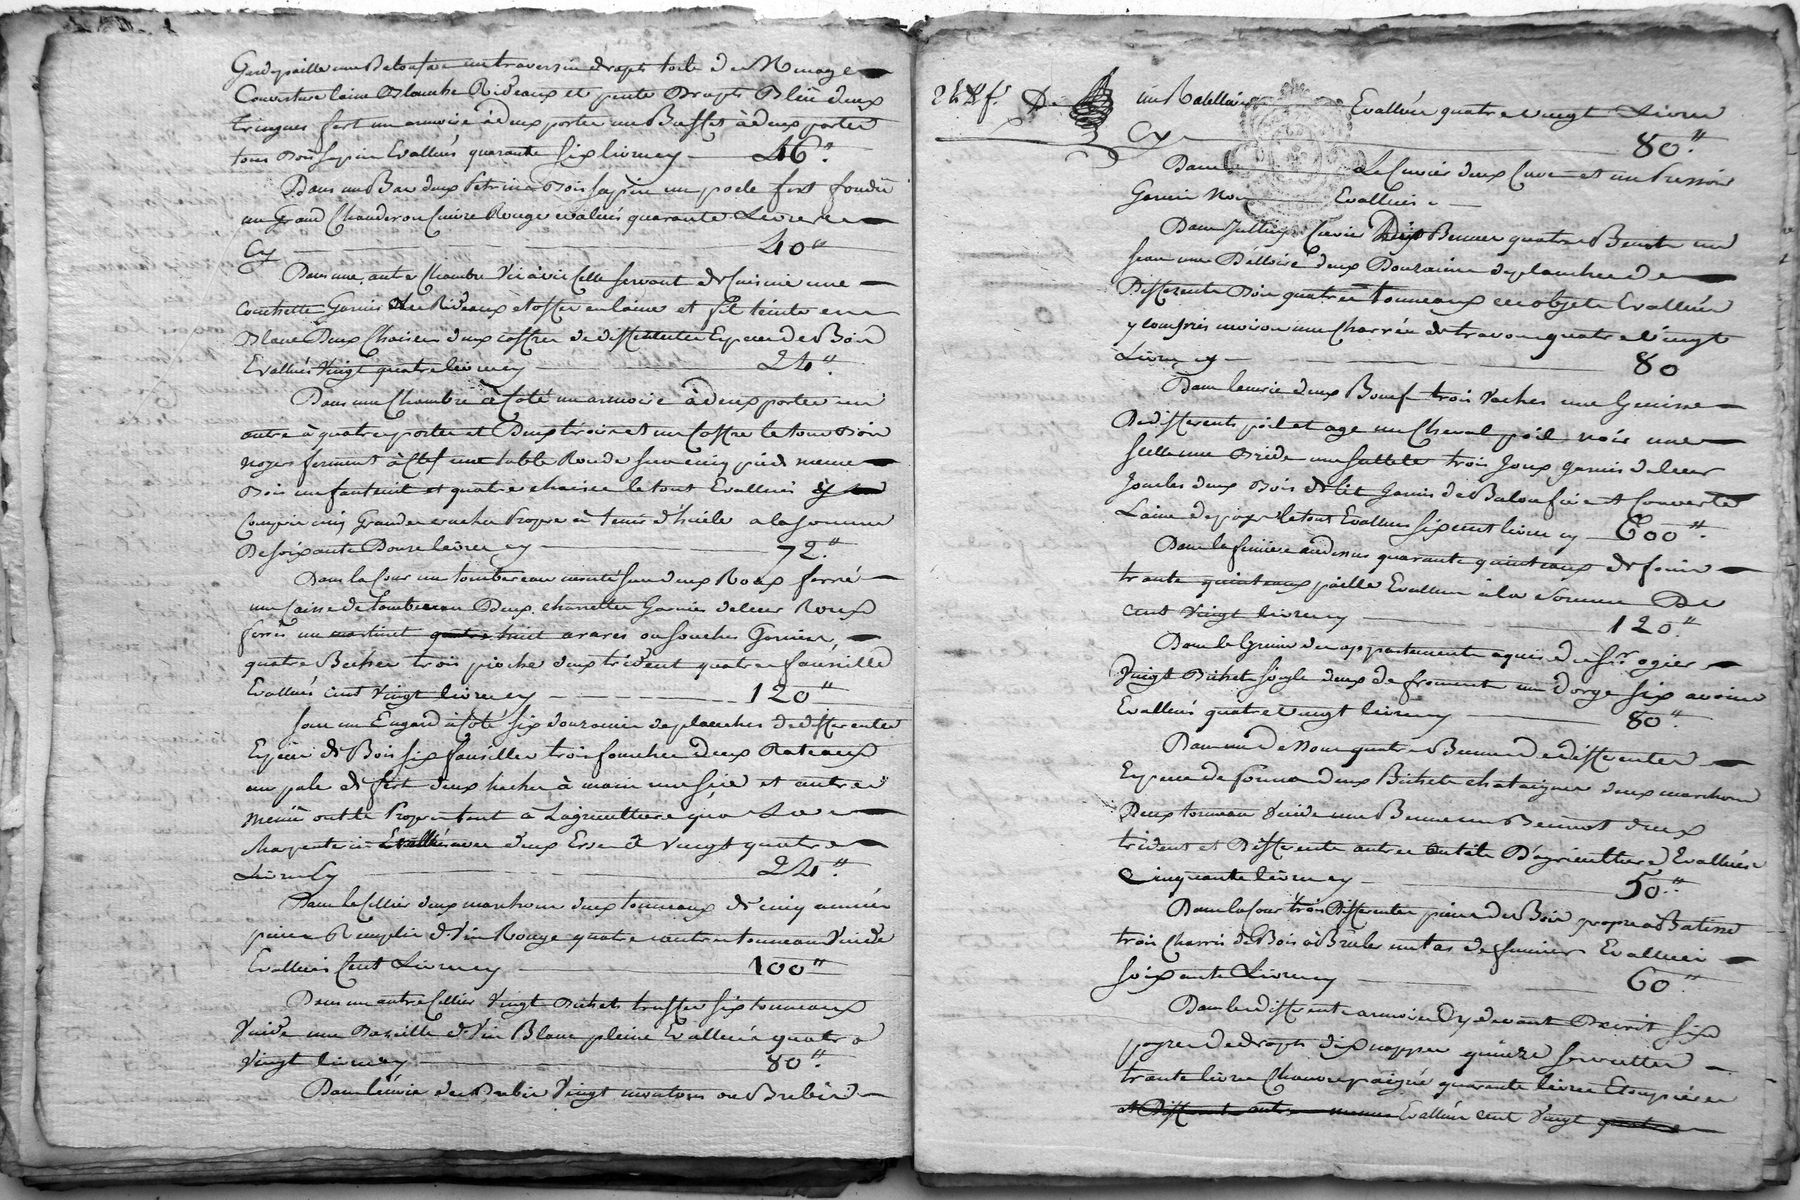 Gardepaille une Baloufière un traversin draps toile de Menage
Couverture laine Blanche Rideaux et pente Draps Bleü deux
tringues fert un armoire à deux portes un Buffet à deux portes
tous Bois sapin Evalluées quarante six livres cy 46."
Dans un Bas deux Petrins Bois sapin un poele fert fondu
un grand Chauderon Cuivre Rouge evalués quarante Livres
Cy 40"
Dans une autre Chambre vis à vis Celle servant de Cuisine une
couchette Garnie de Rideaux etoffe en laine et fil teinte en
Blanc Deux Chaises deux coffres de differentes Espece de Bois
Evallués vingt quatre livres cy 24."
Dans une Chambre à Coté un armoire à deux portes un
autre à quatre portes et Deux tiroirs et un Coffre le tout Bois
noyer ferment à Clef une table Ronde sur cinq pieds meme
Bois un fauteuil et quatre chaises le tout Evallués y
Compris cinq Grandes cruches Propre à tenir d'huile a la somme
De soixante Douze livres cy 72."
Dans la Cour un tombereau monté sur deux Roux ferré
une Caisse de tombereau Deux charrettes Garnies de leur Roux
ferrés un martinet quatre huit araires ou souches Garnies,
quatre Beches trois pioche deux trident quatre faucilles
Evallués cent vingt livres cy 120"
sous un Engard à Coté six douzaine de planches de differentes
Espece de Bois six faucilles trois fourches deux Rateaux
une pale de fert deux haches à main une scie et autres
menü outils Propre tant à Lagriculture qu'a La
charpenterie Evalluées avec deux Erse à vingt quatre
Livres Cy 24."
Dans le Cellier deux marchons deux tonneaux de cinq année
piece Remplie de Vin Rouge quatre autres tonneaux Vuide
Evallués Cent Livres cy 100"
Dans un autre Cellier vingt Bichets truffes six tonneaux
Vuide une Bareille de Vin Blanc pleine Evalluée quatre
Vingt livres cy 80."
Dans l'Ecurie des Brebis Vingt moutons ou Brebis
24 f.
un Ratellier Evalluées quatre vingt Livres
Cy 80."
Dans Le Cuvier deux Cuves et un Pressoir
Garni Non Evalluées
Dans Cuvier Dix Bennes quatre Benots un
seau une deux Douzaine de planches de
Differente Bois quatre tonneaux ces objets Evallués
y compris environ une Charrée de travon quatre Vingt
Livres cy 80
Dans l'ecurie deux Boeuf trois Vaches une Genisse
De differents poil et age un Cheval poil noir une
selle une Bride une trois Joux garnis de leur
Joucles deux Bois de lit Garnis de Baloufière et Couverte
Laine de pays le tout Evalluées six cent livres cy 600".
Dans la feniere au dessus quarante quinteaux de foin
trante quinteaux paille Evalluées à la somme De
cent vingt livres cy 120."
Dans le Grenier des appartements aquis de sr. ogier
Vingt Bichet seigle deux de froment un d'orge six avoine
Evallués quatre Vingt livres cy 80."
Dans un de nous quatre Bennes de differentes
Espece de formes deux Bichets chataignes deux marchons
Deux tonneau Vuide une Benne un Bennot deux
trident et Differente autres outils D'agriculture Evalluées
Cinquante livres cy 50."
Dans la Cour trois Differentes piece de Bois propre à Batisse
trois Charris de Bois à Brules un tas de fumier Evalluées
soixante Livres cy 60."
Dans les differente armoire Cy devant Decrit six
payre de draps dix nappes quinze serviettes
trante livres Chanvre paigné quarante livres Etoupière
et Different autre menus Evalluées cent vingt quatre